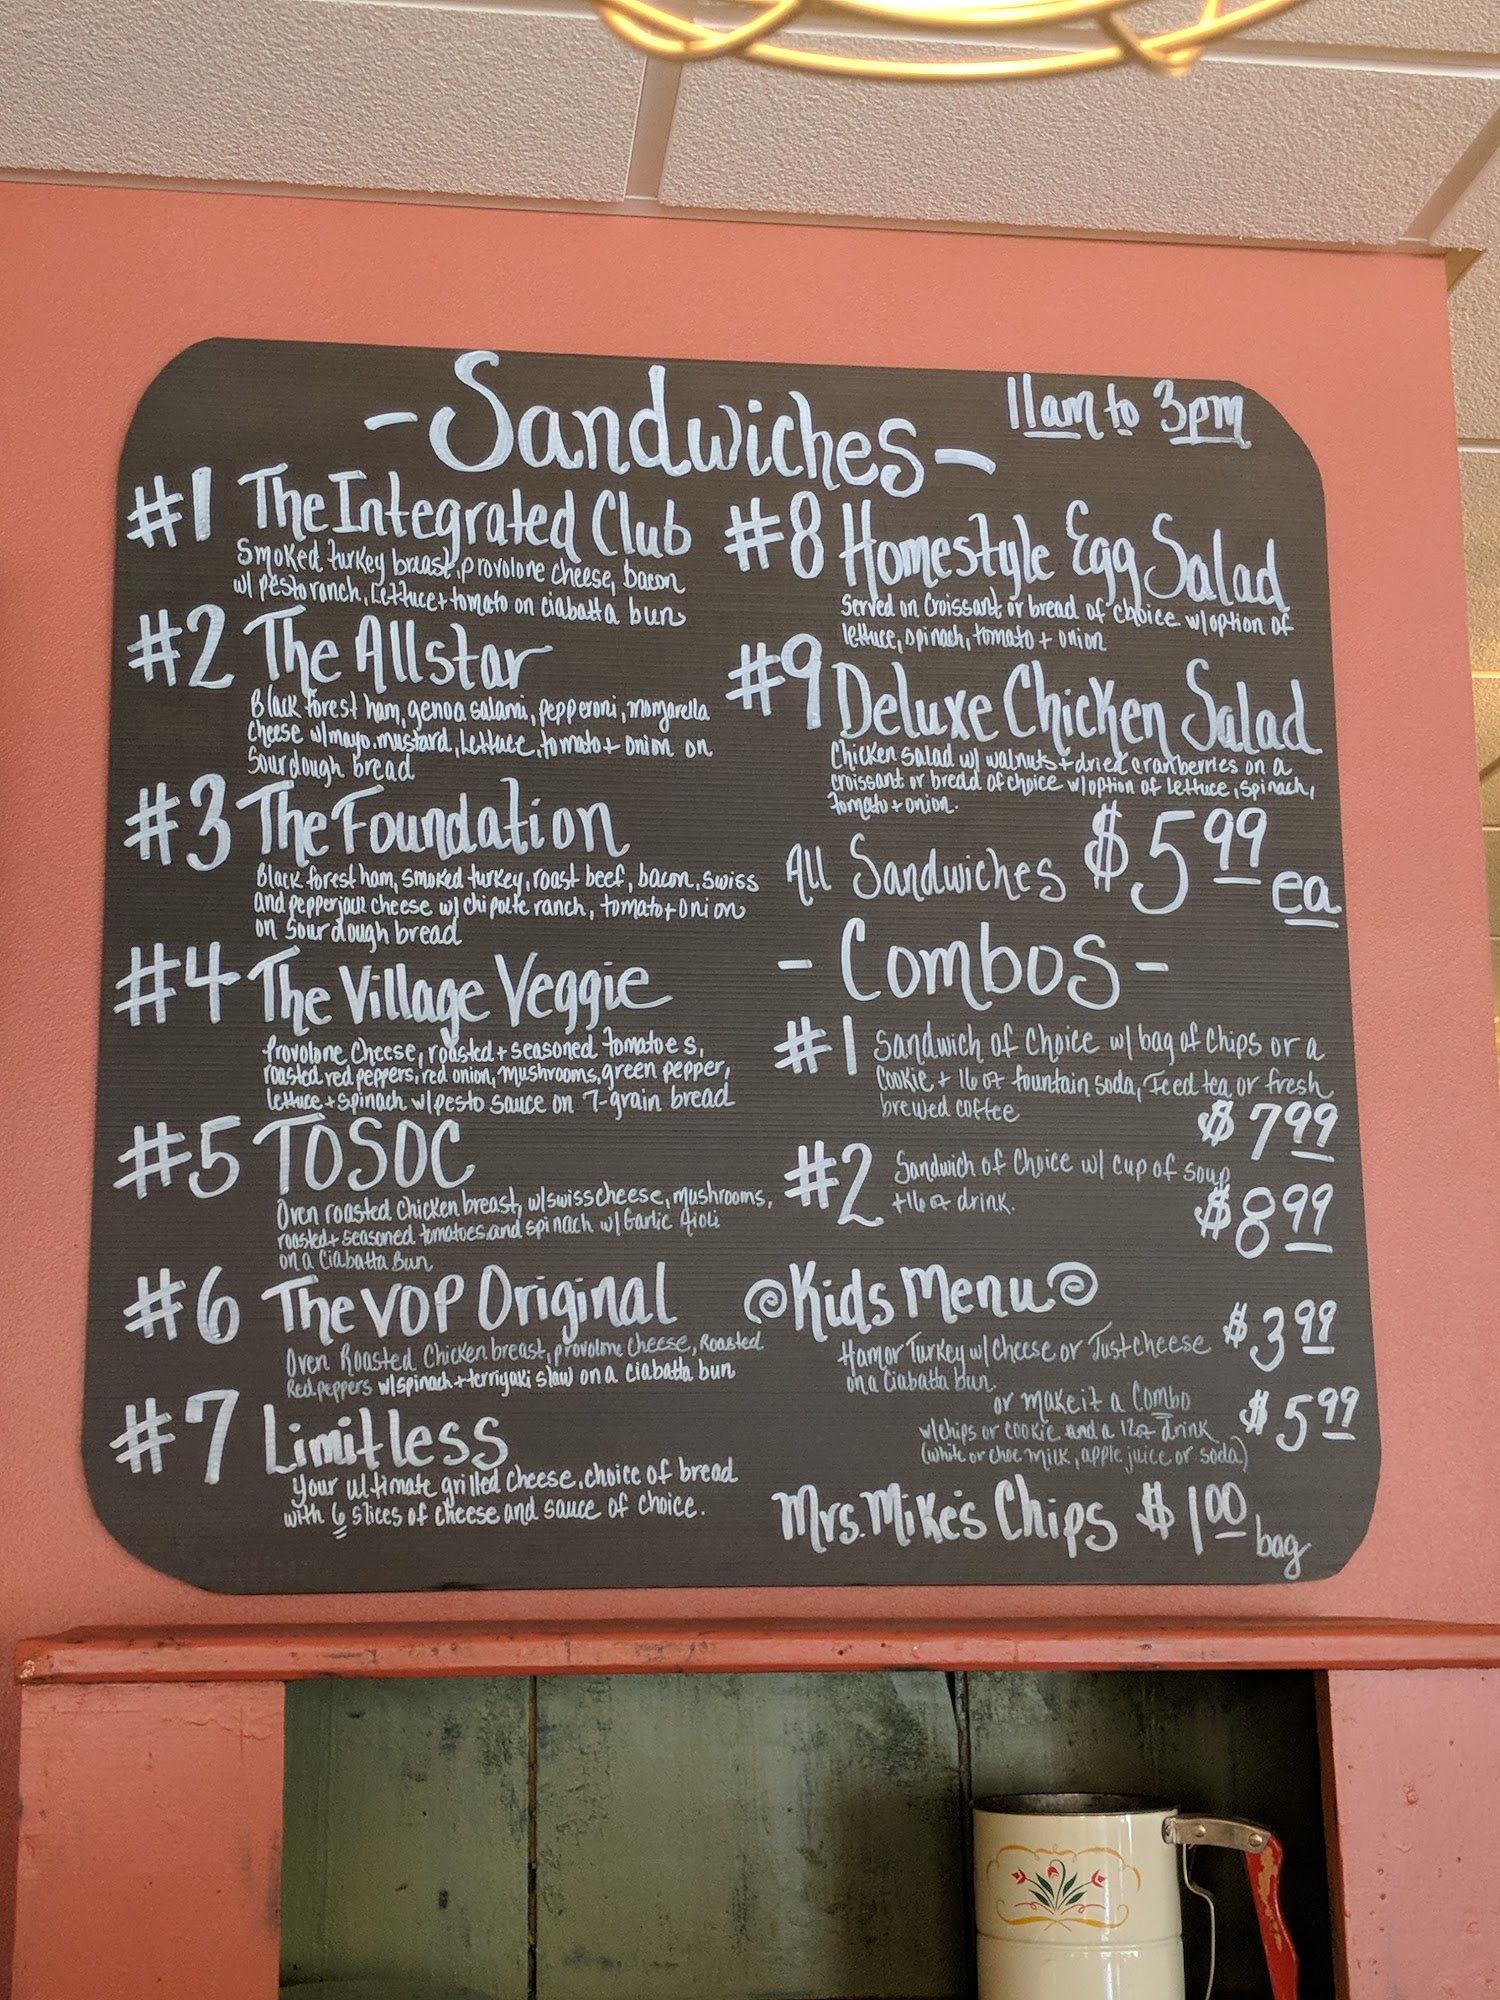 -Sandwiches-
11am to 3pm
#1 The Integrated Club
Smoked turkey breast, provolone cheese, bacon
w/ pesto ranch, lettuce + tomato on ciabatta bun
#2 The Allstar
Black forest ham, genoa salami, pepperoni, mozzarella
cheese w/ mayo, mustard, lettuce, tomato + onion on
Sourdough bread
#3 The Foundation
Black forest ham, smoked turkey, roast beef, bacon, swiss
and pepperjack cheese w/ chipolte ranch, tomato + onion
on Sourdough bread
#4 The Village Veggie
Provolone cheese, roasted + seasoned tomatoes,
roasted red peppers, red onion, mushrooms, green pepper,
lettuce + spinach w/ pesto sauce on 7-grain bread
#5 TOSOC
Oven roasted chicken breast, w/ swiss cheese, mushrooms,
roasted + seasoned tomatoes and spinach w/ Garlic Aioli
on a Ciabatta Bun
#6 The VOP Original
Oven Roasted Chicken breast, provolone cheese, Roasted
Red peppers w/ spinach + terriyaki slaw on a ciabatta bun
#7 Limitless
Your ultimate grilled cheese, choice of bread
with 6 slices of cheese and sauce of choice.
#8 Homestyle Egg Salad
Served on Croissant or bread of choice w/ option of
lettuce, spinach, tomato + onion
#9 Deluxe Chicken Salad
Chicken salad w/ walnuts + dried cranberries on a
croissant or bread of choice w/ option of lettuce, spinach,
tomato + onion.
All Sandwiches $5.99 ea
- Combos -
#1 Sandwich of Choice w/ bag of Chips or a
Cookie + 16 oz fountain soda, Iced tea or fresh
brewed coffee
$7.99
#2 Sandwich of Choice w/ cup of soup
+ 16 oz drink.
$8.99
Kids Menu
Ham or Turkey w/ Cheese or Just Cheese $3.99
on a Ciabatta bun.
or make it a Combo
w/ chips or cookie and a 12oz drink $5.99
(white or choc milk, apple juice or soda)
Mrs. Mike's Chips $1.00 bag